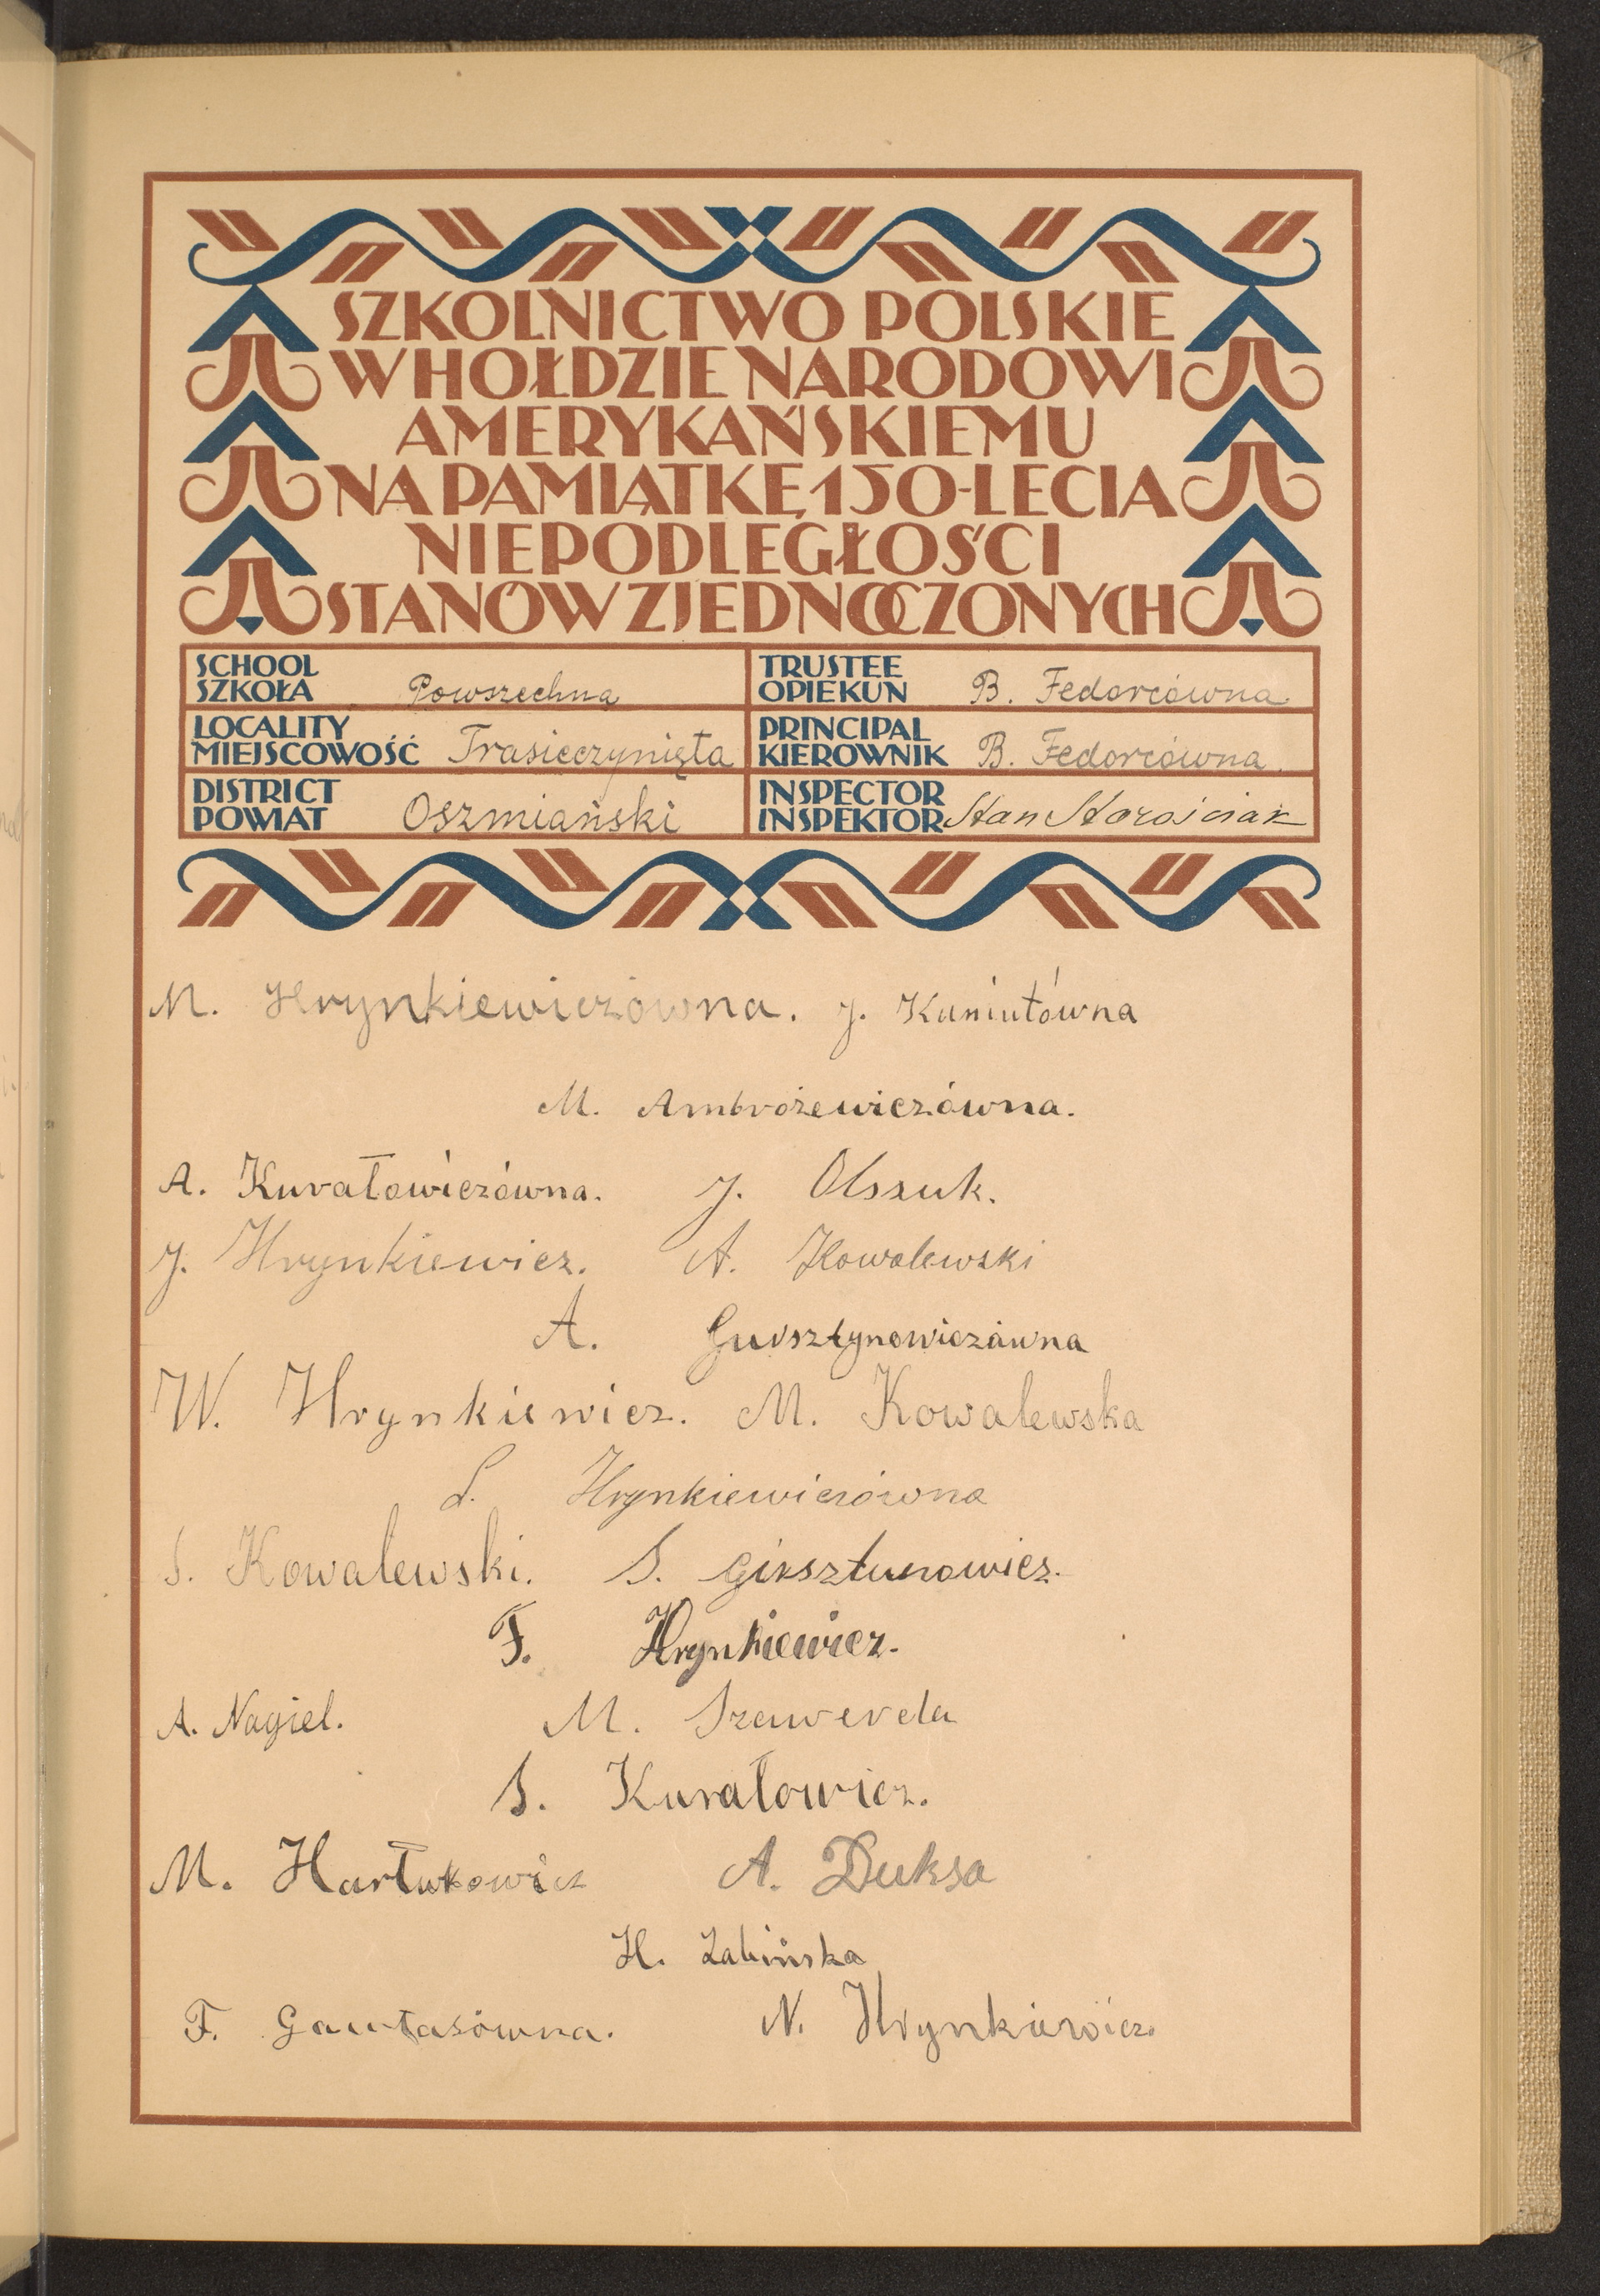 SZKOLNICTWO POLSKIE
W HOŁDZIE NARODOWI
AMERYKAŃSKIEMU
NA PAMIĄTKĘ 150-LECIA
NIEPODLEGŁOŚCI
STANÓW ZJEDNOCZONYCH
SCHOOL
SZKOŁA Powszechna
TRUSTEE
OPIEKUN B. Fedorcówna.
LOCALITY
MIEJSCOWOŚĆ Trasieczynięta
PRINCIPAL
KIEROWNIK B. Fedorcówna.
DISTRICT
POWIAT Oszmiański
INSPECTOR
INSPEKTOR Stan Starościak
M. Hrynkiewiczówna. J. Kuniutówna
M. Ambrożewiczówna.
A. Kurałowiczówna. J. Olszuk.
J. Hrynkiewicz. A. Kowalewski
A. Gursztynowiczówna
W. Hrynkiewicz. M. Kowalewska
L. Hrynkiewiczówna
S. Kowalewski. S. Girsztunowicz.
F. Hrynkiewicz.
A. Nagiel. M. Szewerda
S. Kurałowicz.
M. Hartukowicz A. Duksa
H. Żabińska
F. Gawtasówna. N. Hrynkiewicz.